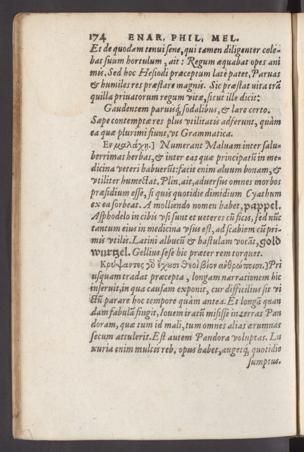 174 ENAR. PHIL. MEL.
Et de quodam tenui sene, qui tamen diligenter cole-
bat suum hortulum, ait: Regum æquabat opes ani
mis, Sed hoc Hesiodi præceptum latè patet, Paruas
& humiles res præstare magnis. Sic præstat uita trã
quilla priuatorum regum vitæ, sicut ille dicit:
Gaudentem paruisq́; sodalibus, & lare certo.
Sæpe contemptæ res plus vtilitatis adferunt, quàm
ea quæ plurimi fiunt, vt Grammatica.
Εν μαλάχῃ.] Numerant Maluam inter salu-
berrimas herbas, & inter eas quæ principatũ in me-
dicina veteri habuerũt: facit enim aluum bonam, &
vtiliter humectat, Plin. ait, aduersus omnes morbos
præsidium esse, si quis quotidie dimidium Cyathum
ex ea sorbeat. A molliendo nomen habet, pappel.
Asphodelo in cibis vsi sunt et ueteres cũ ficis, sed nũc
tantum eius in medicina vsus est, ad scabiem cũ pri-
mis vtilis. Latini albucũ & hastulam vocãt, gold
wurtzel. Gellius sese hic præter rem torquet.
Κρύψαντες γὸ ἔχουσι θεοὶ βίον ἀνθρώποισι.] Pri
usquam tradat præcepta, longam narrationem hic
inserit, in qua causam exponit, cur difficilius sit vi
ctũ parare hoc tempore quàm antea. Et longã quan
dam fabulã fingit, Iouem iratũ misisse in terras Pan
doram, quæ tum id mali, tum omnes alias ærumnas
secum attulerit. Est autem Pandora voluptas. Lu
xuria enim multis reb. opus habet, augetq́; quotidie
sumptus.